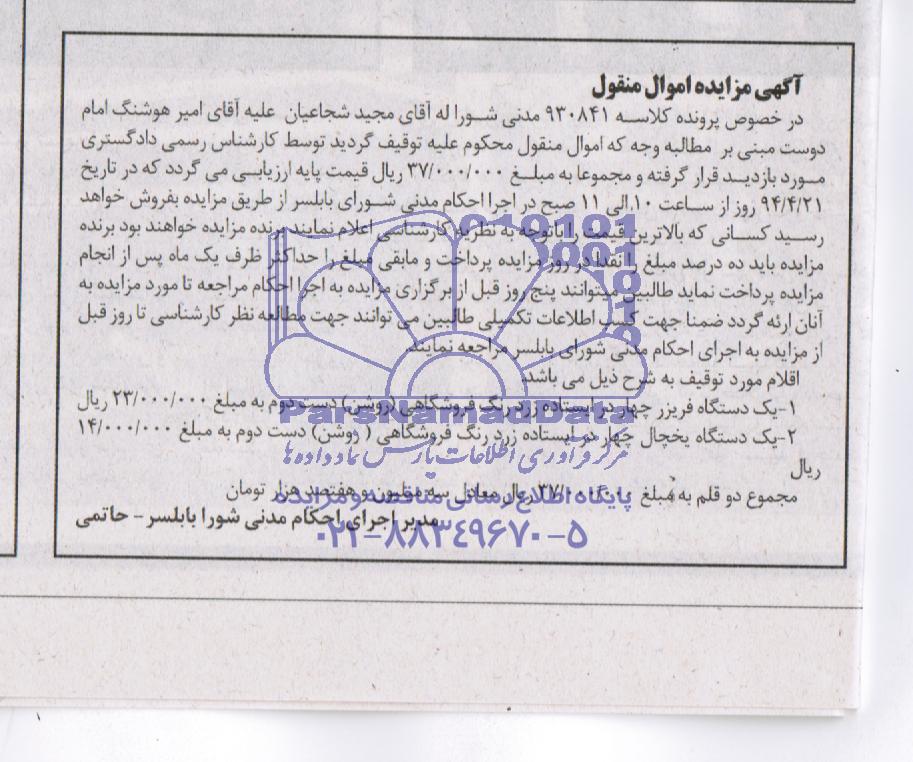 آگهی مزایده اموال منقول
در خصوص پرونده کلاسه ۹۳۰۸۴۱ مدنی شورا له آقای مجید شجاعیان علیه آقای امیر هوشنگ امام
دوست مبنی بر مطالبه وجه که اموال منقول محکوم علیه توقیف گردید توسط کارشناس رسمی دادگستری
مورد بازدید قرار گرفته و مجموعا به مبلغ ۳۷/۰۰۰/۰۰۰ ریال قیمت پایه ارزیابی می گردد که در تاریخ
۹۴/۴/۲۱ روز از ساعت ۱۰ الی ۱۱ صبح در اجرا احکام مدنی شورای بابلسر از طریق مزایده بفروش خواهد
رسید کسانی که بالاترین قیمت را باتوجه به نظریه کارشناسی اعلام نمایند برنده مزایده خواهند بود برنده
مزایده باید ده درصد مبلغ را نقدا در روز مزایده پرداخت و مابقی مبلغ را حداکثر ظرف یک ماه پس از انجام
مزایده پرداخت نماید طالبین میتوانند پنج روز قبل از برگزاری مزایده به اجرا احکام مراجعه تا مورد مزایده به
آنان ارئه گردد ضمنا جهت کسب اطلاعات تکمیلی طالبین می توانند جهت مطالعه نظر کارشناسی تا روز قبل
از مزایده به اجرای احکام مدنی شورای بابلسر مراجعه نمایند.
اقلام مورد توقیف به شرح ذیل می باشد.
۱-یک دستگاه فریزر چهار در ایستاده زرد رنگ فروشگاهی (روشن) دست دوم به مبلغ ۲۳/۰۰۰/۰۰۰ ریال
ParsNamadData
۲-یک دستگاه یخچال چهار در ایستاده زرد رنگ فروشگاهی ( روشن) دست دوم به مبلغ ۱۴/۰۰۰/۰۰۰
ریال
مرکز فرآوری اطلاعات پارس نماد داده ها
مجموع دو قلم به مبلغ ۳۷/۰۰۰/۰۰۰ ریال معادل سه میلیون و هفتصد هزار تومان
پایگاه اطلاع رسانی مناقصه و مزایده
مدیر اجرای احکام مدنی شورا بابلسر - حاتمی
۰۲۱-۸۸۳۴۹۶۷۰-۵